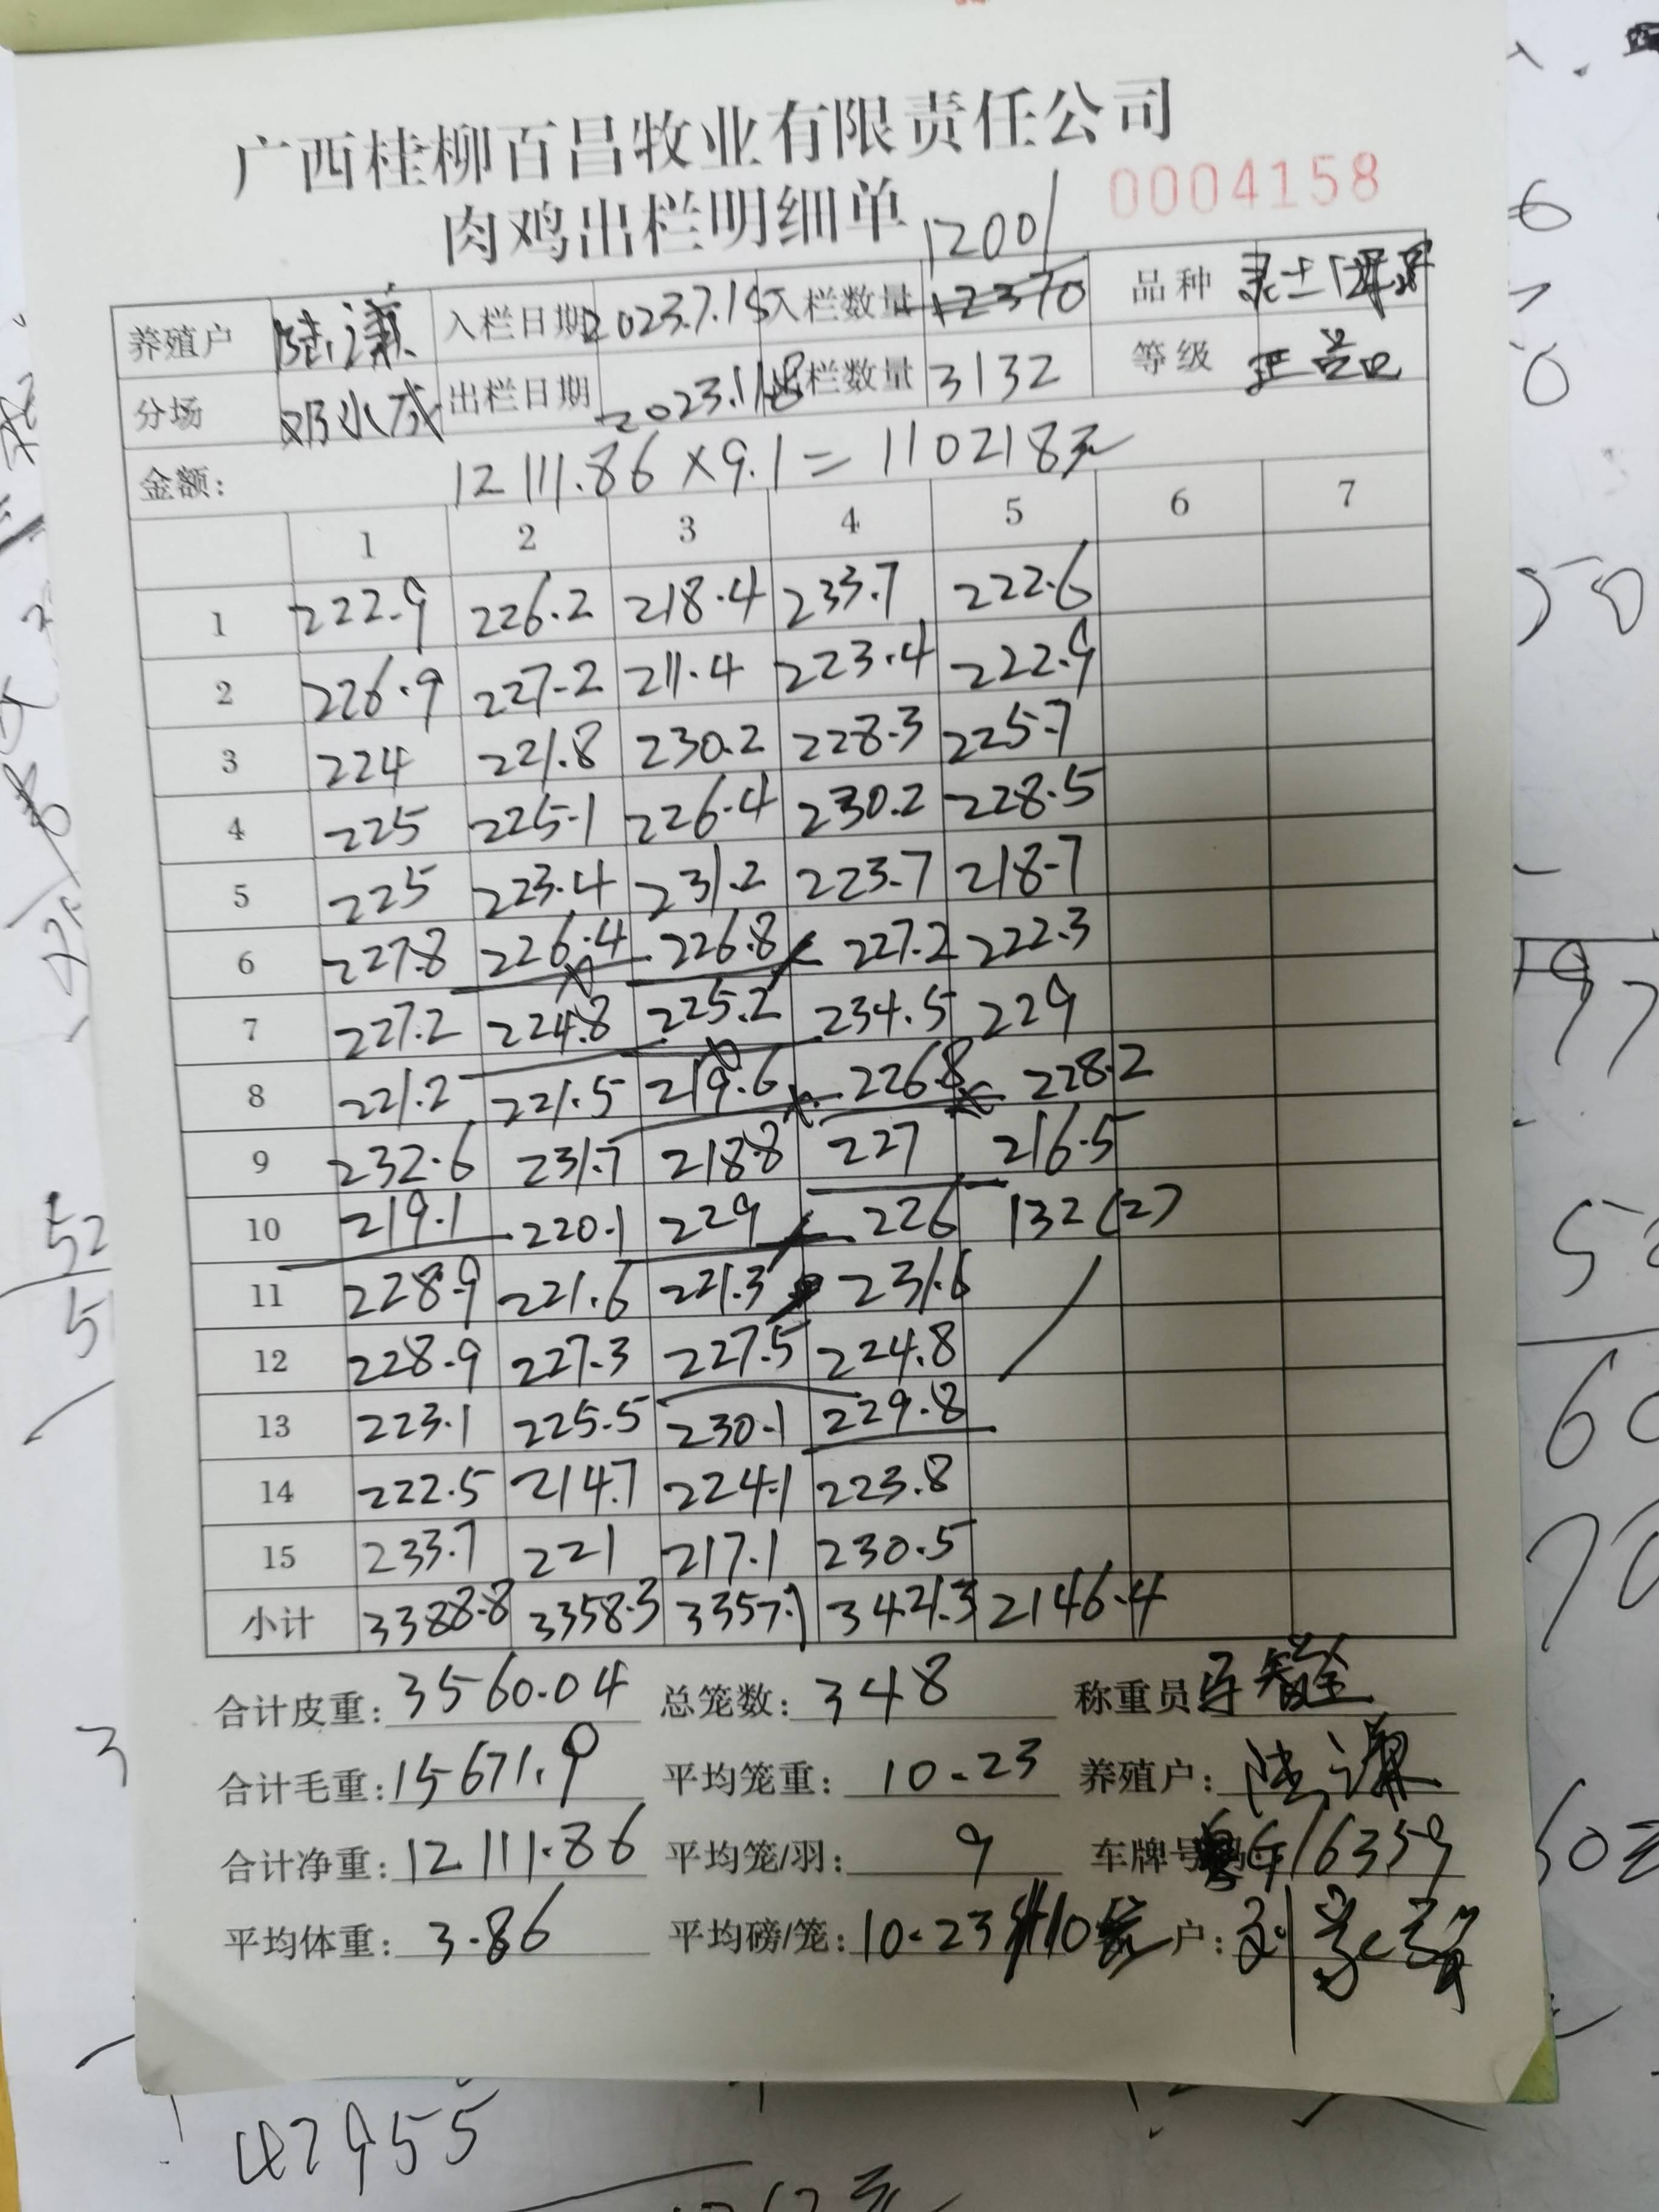 广西桂柳百昌牧业有限责任公司
肉鸡出栏明细单
0004158
12001
养殖户 陆谦 入栏日期 2023.7.15 入栏数量 12370 品种 灵土
分场 邓小成 出栏日期 2023.11.8 出栏数量 3132 等级 正品
金额: 12111.86×9.1=110218元
1 2 3 4 5 6 7
1 222.9 226.2 218.4 233.7 222.6
2 226.9 227.2 211.4 223.4 222.9
3 224 221.8 230.2 228.3 225.7
4 225 225.1 226.4 230.2 228.5
5 225 223.4 231.2 223.7 218.7
6 227.8 226.4 226.8 227.2 222.3
7 227.2 224.8 225.2 234.5 229
8 221.2 221.5 219.6 226.8 228.2
9 232.6 231.7 218.8 227 216.5
10 219.1 220.1 229 226 132(2)
11 228.9 221.6 221.3 231.6
12 228.9 227.3 227.5 224.8
13 223.1 225.5 230.1 229.8
14 222.5 214.7 224.1 223.8
15 233.7 221 217.1 230.5
小计 3388.8 3358.3 3357.1 3421.3 2146.4
合计皮重: 3560.04 总笼数: 348 称重员
合计毛重: 15671.9 平均笼重: 10.23 养殖户: 陆谦
合计净重: 12111.86 平均笼/羽: 9 车牌号码 粤G16359
平均体重: 3.86 平均磅/笼: 10.23 户:
42955